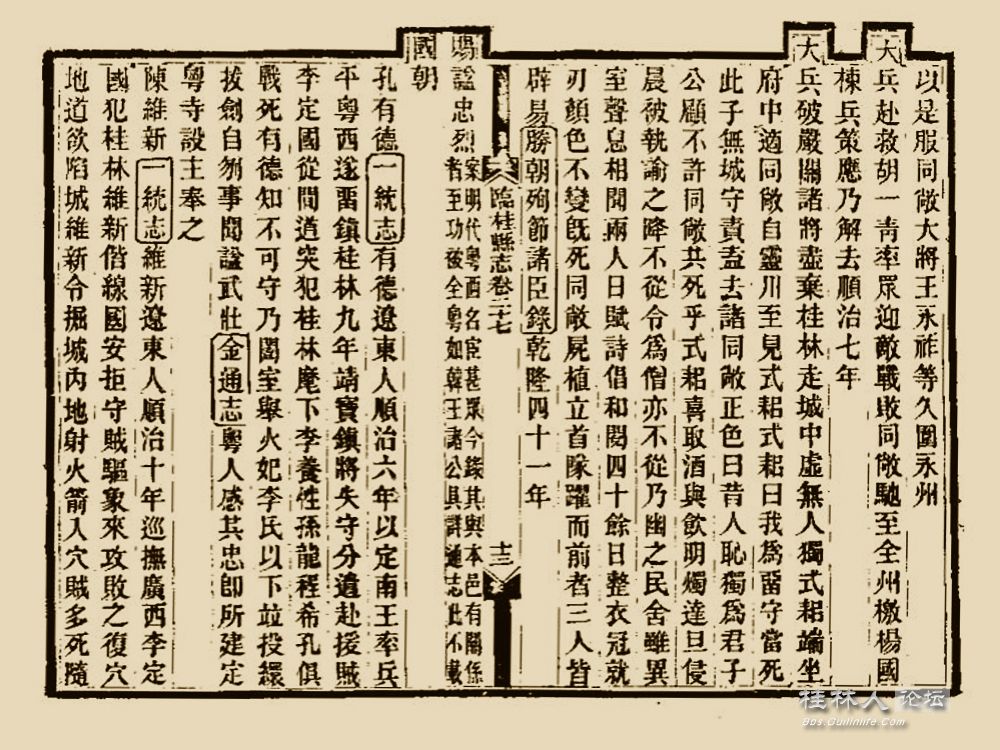 以是服同敞大將王永祚等久圍永州
大兵赴救胡一靑率眾迎敵戰敗同敞馳至全州檄楊國
棟兵策應乃解去順治七年
大兵破嚴關諸將盡棄桂林走城中虛無人獨式耜端坐
府中適同敞自靈川至見式耜式耜曰我爲畱守當死
此子無城守責盍去諸同敞正色曰昔人恥獨爲君子
公顧不許同敞共死乎式耜喜取酒與飲明燭達旦侵
晨被執諭之降不從令爲僧亦不從乃幽之民舍雖異
室聲息相聞兩人日賦詩倡和閱四十餘日整衣冠就
刃顏色不變旣死同敞屍植立首隊躍而前者三人皆
辟易勝朝殉節諸臣錄乾隆四十一年
臨桂縣志卷二十七 十三
賜諡忠烈案明代粵西名宦甚眾今錄其與本邑有關係
者至功被全粵如韓王諸公具詳通志此不載
國朝
孔有德一統志有德遼東人順治六年以定南王率兵
平粵西遂畱鎮桂林九年靖寶鎮將失守分遣赴援賊
李定國從間道突犯桂林麾下李養性孫龍程希孔俱
戰死有德知不可守乃闔室舉火妃李氏以下竝投繯
拔劍自刎事聞諡武壯金通志粵人感其忠卽所建定
粵寺設主奉之
陳維新一統志維新遼東人順治十年巡撫廣西李定
國犯桂林維新偕線國安拒守賊驅象來攻敗之復穴
地道欲陷城維新令掘城內地射火箭入穴賊多死隨
桂林人论坛
Bbs.Guilinlife.com